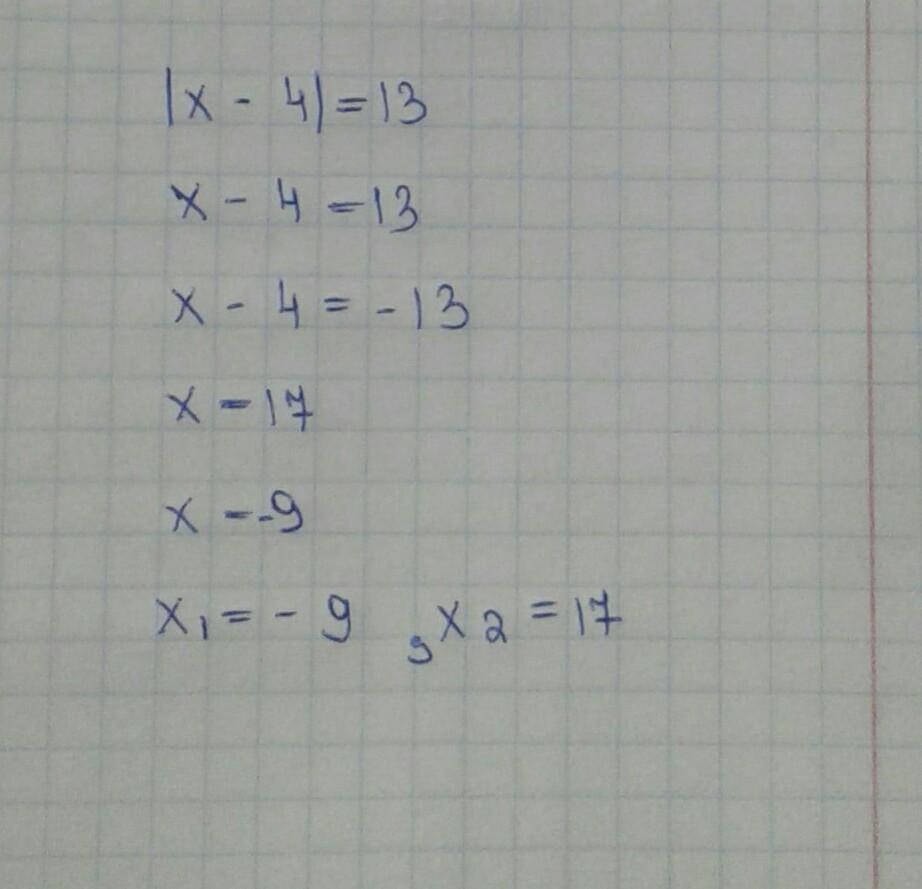 |x - 4|=13
x - 4 =13
x - 4 = -13
x = 17
x = -9
x₁ = - 9 , x₂ = 17